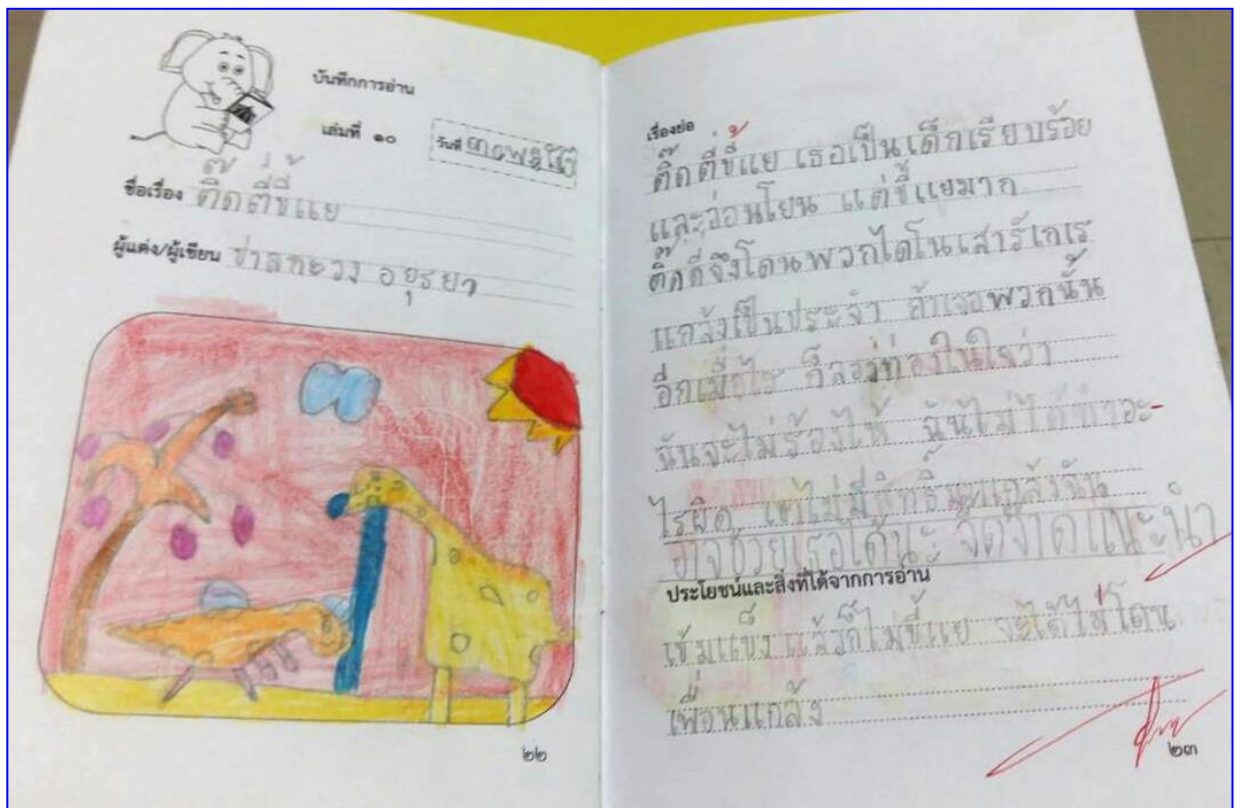 บันทึกการอ่าน
เล่มที่ ๑๐
วันที่
ชื่อเรื่อง ติ๊กตี่ขี้แย
ผู้แต่ง/ผู้เขียน อยุธยา
๒๒
เรื่องย่อ
ติ๊กตี่ขี้แย เธอเป็นเด็กเรียบร้อย
และอ่อนโยน แต่ขี้แยมาก
ติ๊กตี่จึงโดนพวกไดโนเสาร์เกเร
แกล้งเป็นประจำ ถ้าเจอพวกนั้น
อีกเมื่อไร ก็ลองท่องในใจว่า
ฉันจะไม่ร้องไห้ ฉันไม่ได้ทำอะ-
ไรผิด เธอไม่มีสิทธิ์มาแกล้งฉัน
อาจช่วยเธอได้นะ จิดจาดแนะนำ
ประโยชน์และสิ่งที่ได้จากการอ่าน
เข้มแข็งแล้วก็ไม่ขี้แย จะได้ไม่โดน
เพื่อนแกล้ง
๒๓